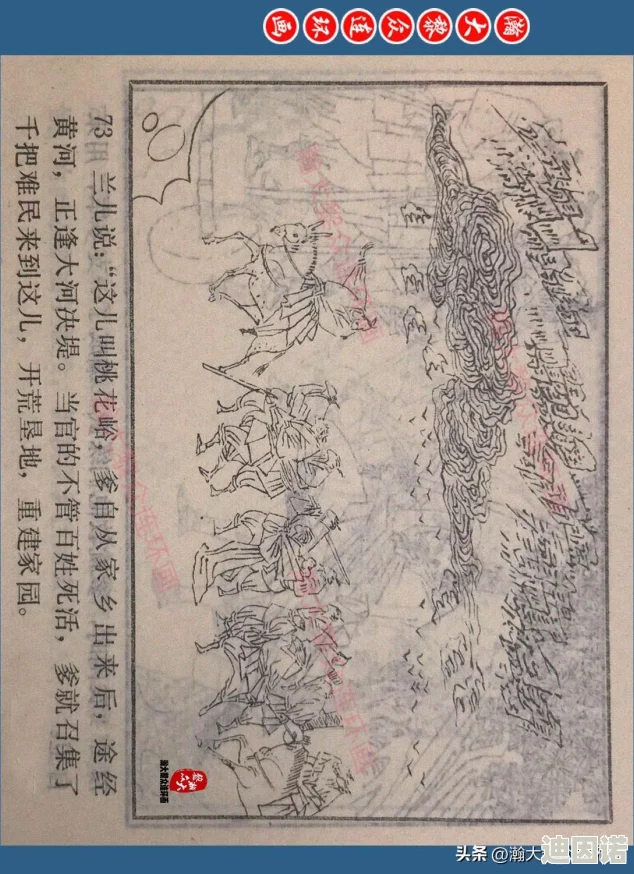 瀚大黎众连环画
73 兰儿说：“这儿叫桃花峪，爹自从家乡出来后，途经
黄河，正逢大河决堤。当官的不管百姓死活，爹就召集了
千把难民来到这儿，开荒垦地，重建家园。
瀚大黎众连环画
头条 @瀚大
迪因诺